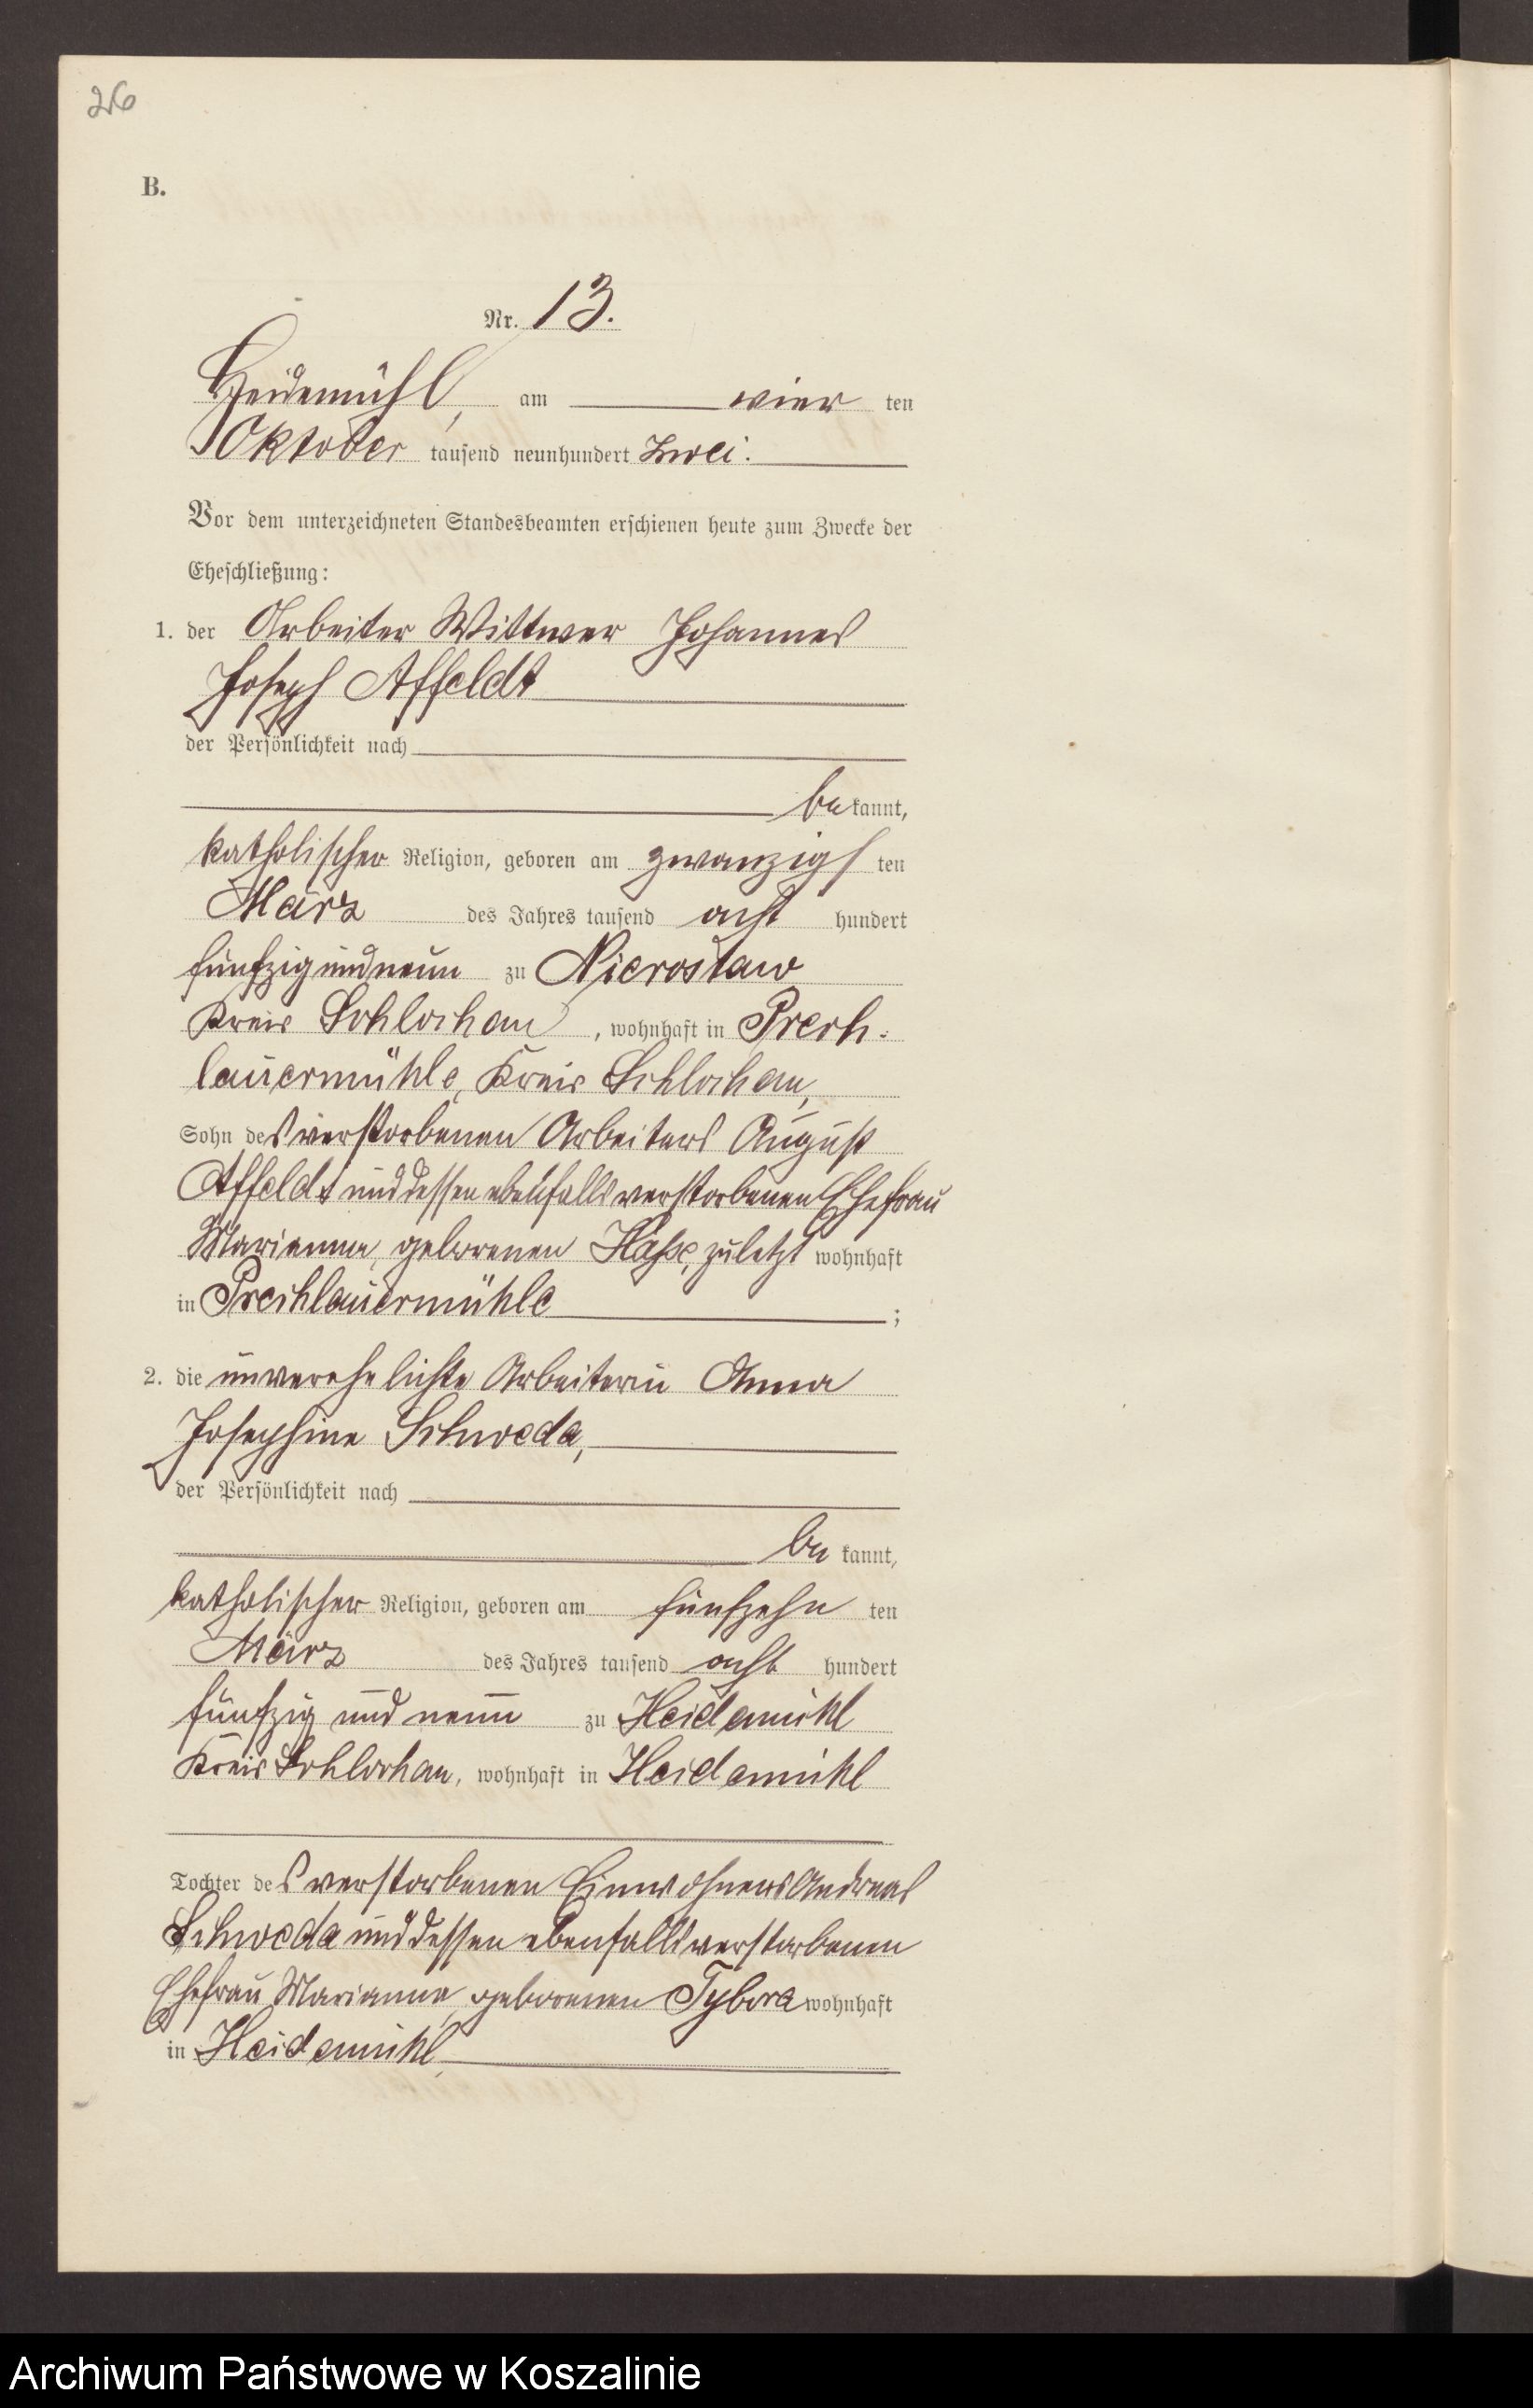 26
B.
Nr. 13.
Heidemühl, am vier ten
Oktober tausend neunhundert zwei.
Vor dem unterzeichneten Standesbeamten erschienen heute zum Zwecke der
Eheschließung:
1. der Arbeiter Wittwer Johannes
Joseph Affeldt
der Persönlichkeit nach
be kannt,
katholischer Religion, geboren am zwanzigs ten
März des Jahres tausend acht hundert
fünfzig und neun zu Nierostaw
Kreis Schlochau, wohnhaft in Prech-
lauermühle, Kreis Schlochau,
Sohn des verstorbenen Arbeiters August
Affeldt und dessen ebenfalls verstorbenen Ehefrau
Marianna, geborenen Hasse, zuletzt wohnhaft
in Prechlauermühle ;
2. die unverehelichte Arbeiterin Anna
Josephine Schweda,
der Persönlichkeit nach
be kannt,
katholischer Religion, geboren am fünfzehn ten
März des Jahres tausend acht hundert
fünfzig und neun zu Heidemühl
Kreis Schlochau, wohnhaft in Heidemühl
Tochter des verstorbenen Einwohners Andreas
Schweda und dessen ebenfalls verstorbenen
Ehefrau Marianna, geborenen Tybora wohnhaft
in Heidemühl
Archiwum Państwowe w Koszalinie